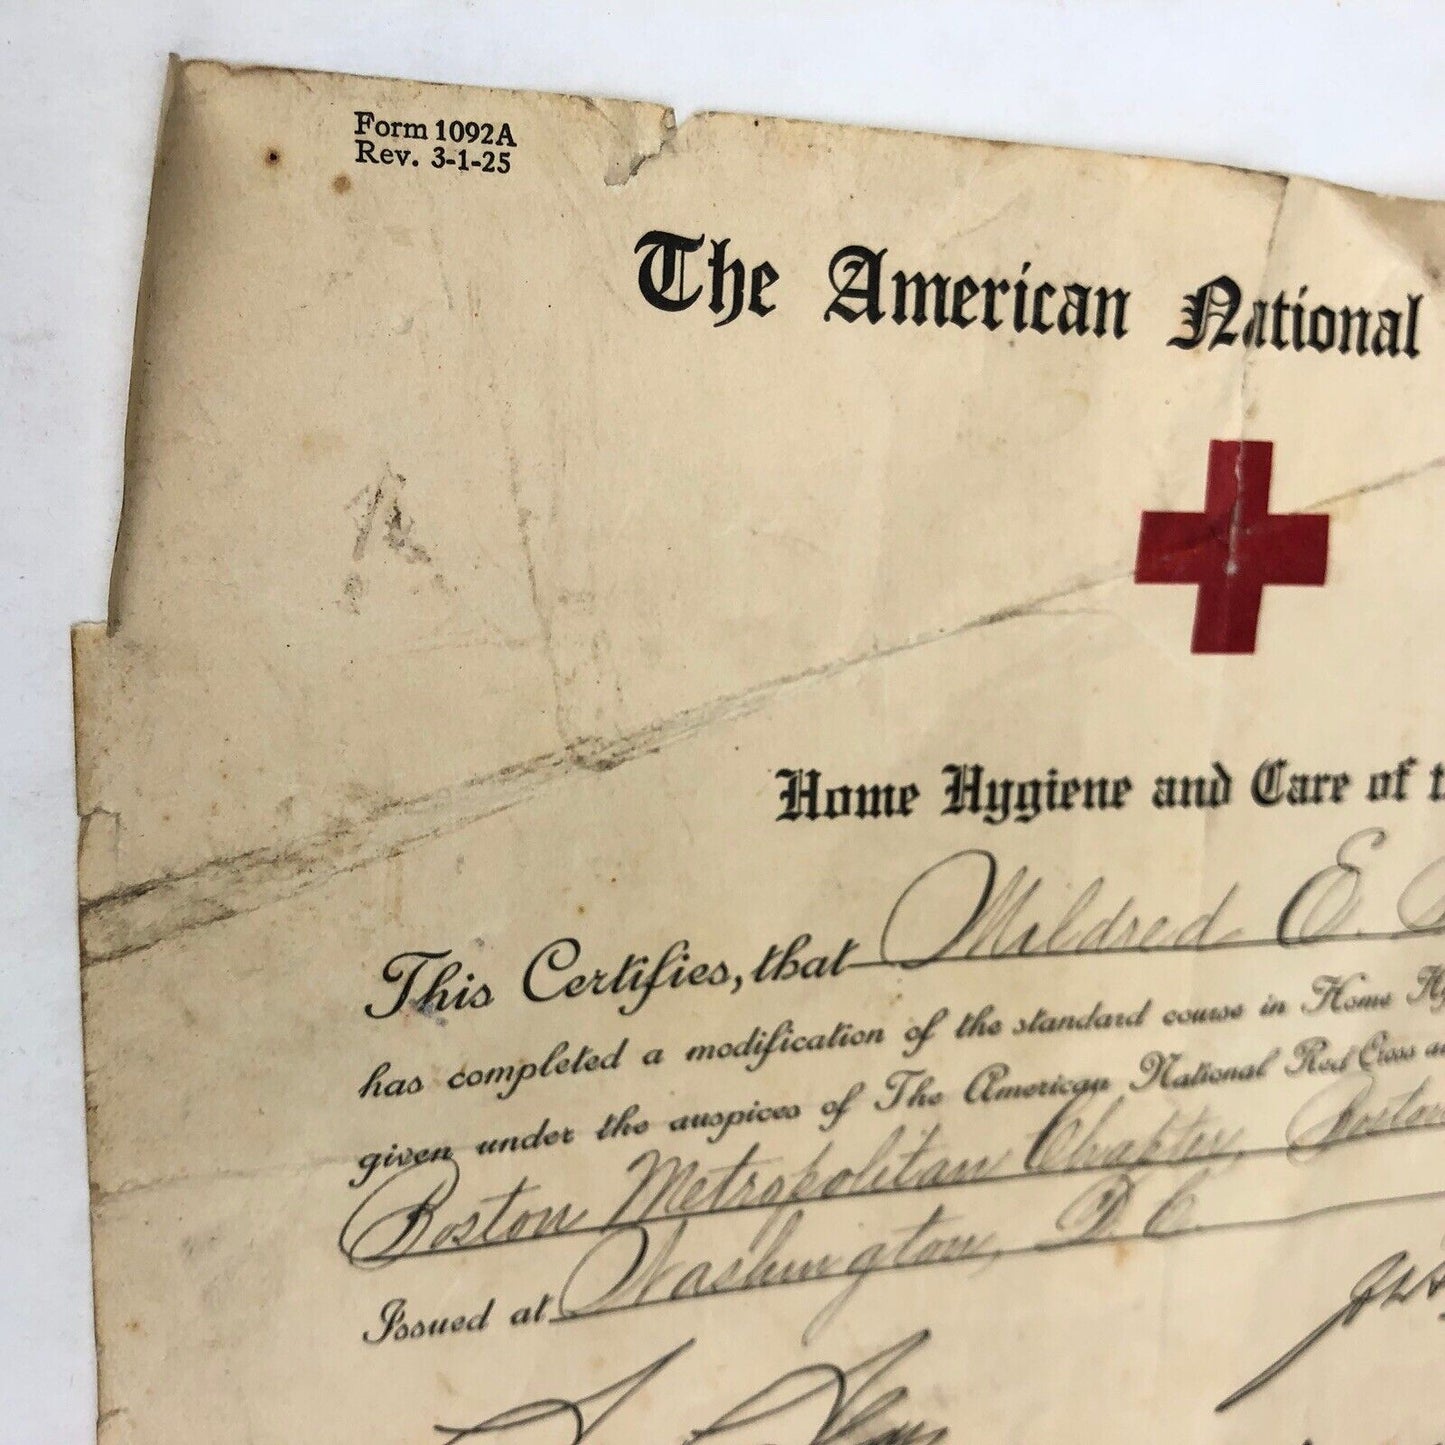 Form 1092A
Rev. 3-1-25
The American National
Home Hygiene and Care of t
This Certifies, that Mildred E.
has completed a modification of the standard course in Home Hy
given under the auspices of The American National Red Cross a
Boston Metropolitan Chapter, Boston
Issued at Washington, D.C.